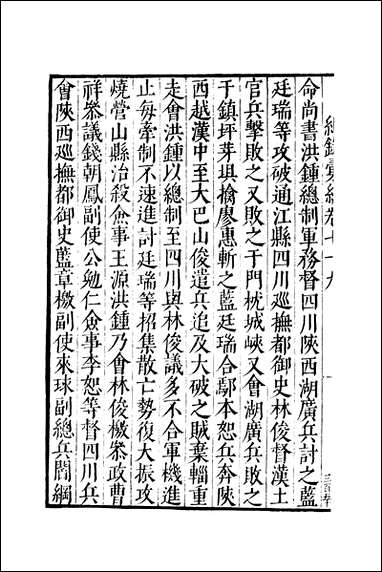 綿錄彙編卷七十九
命尚書洪鍾總制軍務督四川陝西湖廣兵討之藍
廷瑞等攻破通江縣四川巡撫都御史林俊督漢土
官兵擊敗之又敗之于門枕城峽又會湖廣兵敗之
于鎮坪芽埧擒廖惠斬之藍廷瑞合鄢本恕兵奔陝
西越漢中至大巴山俊遣兵追及大破之賊棄輜重
走會洪鍾以總制至四川與林俊議多不合軍機進
止每牽制不速進討廷瑞等招集散亡勢復大振攻
燒營山縣治殺僉事王源洪鍾乃會林俊檄叅政曹
祥叅議錢朝鳳副使公勉仁僉事李恕等督四川兵
會陝西巡撫都御史藍章檄副使來球副總兵閻綱